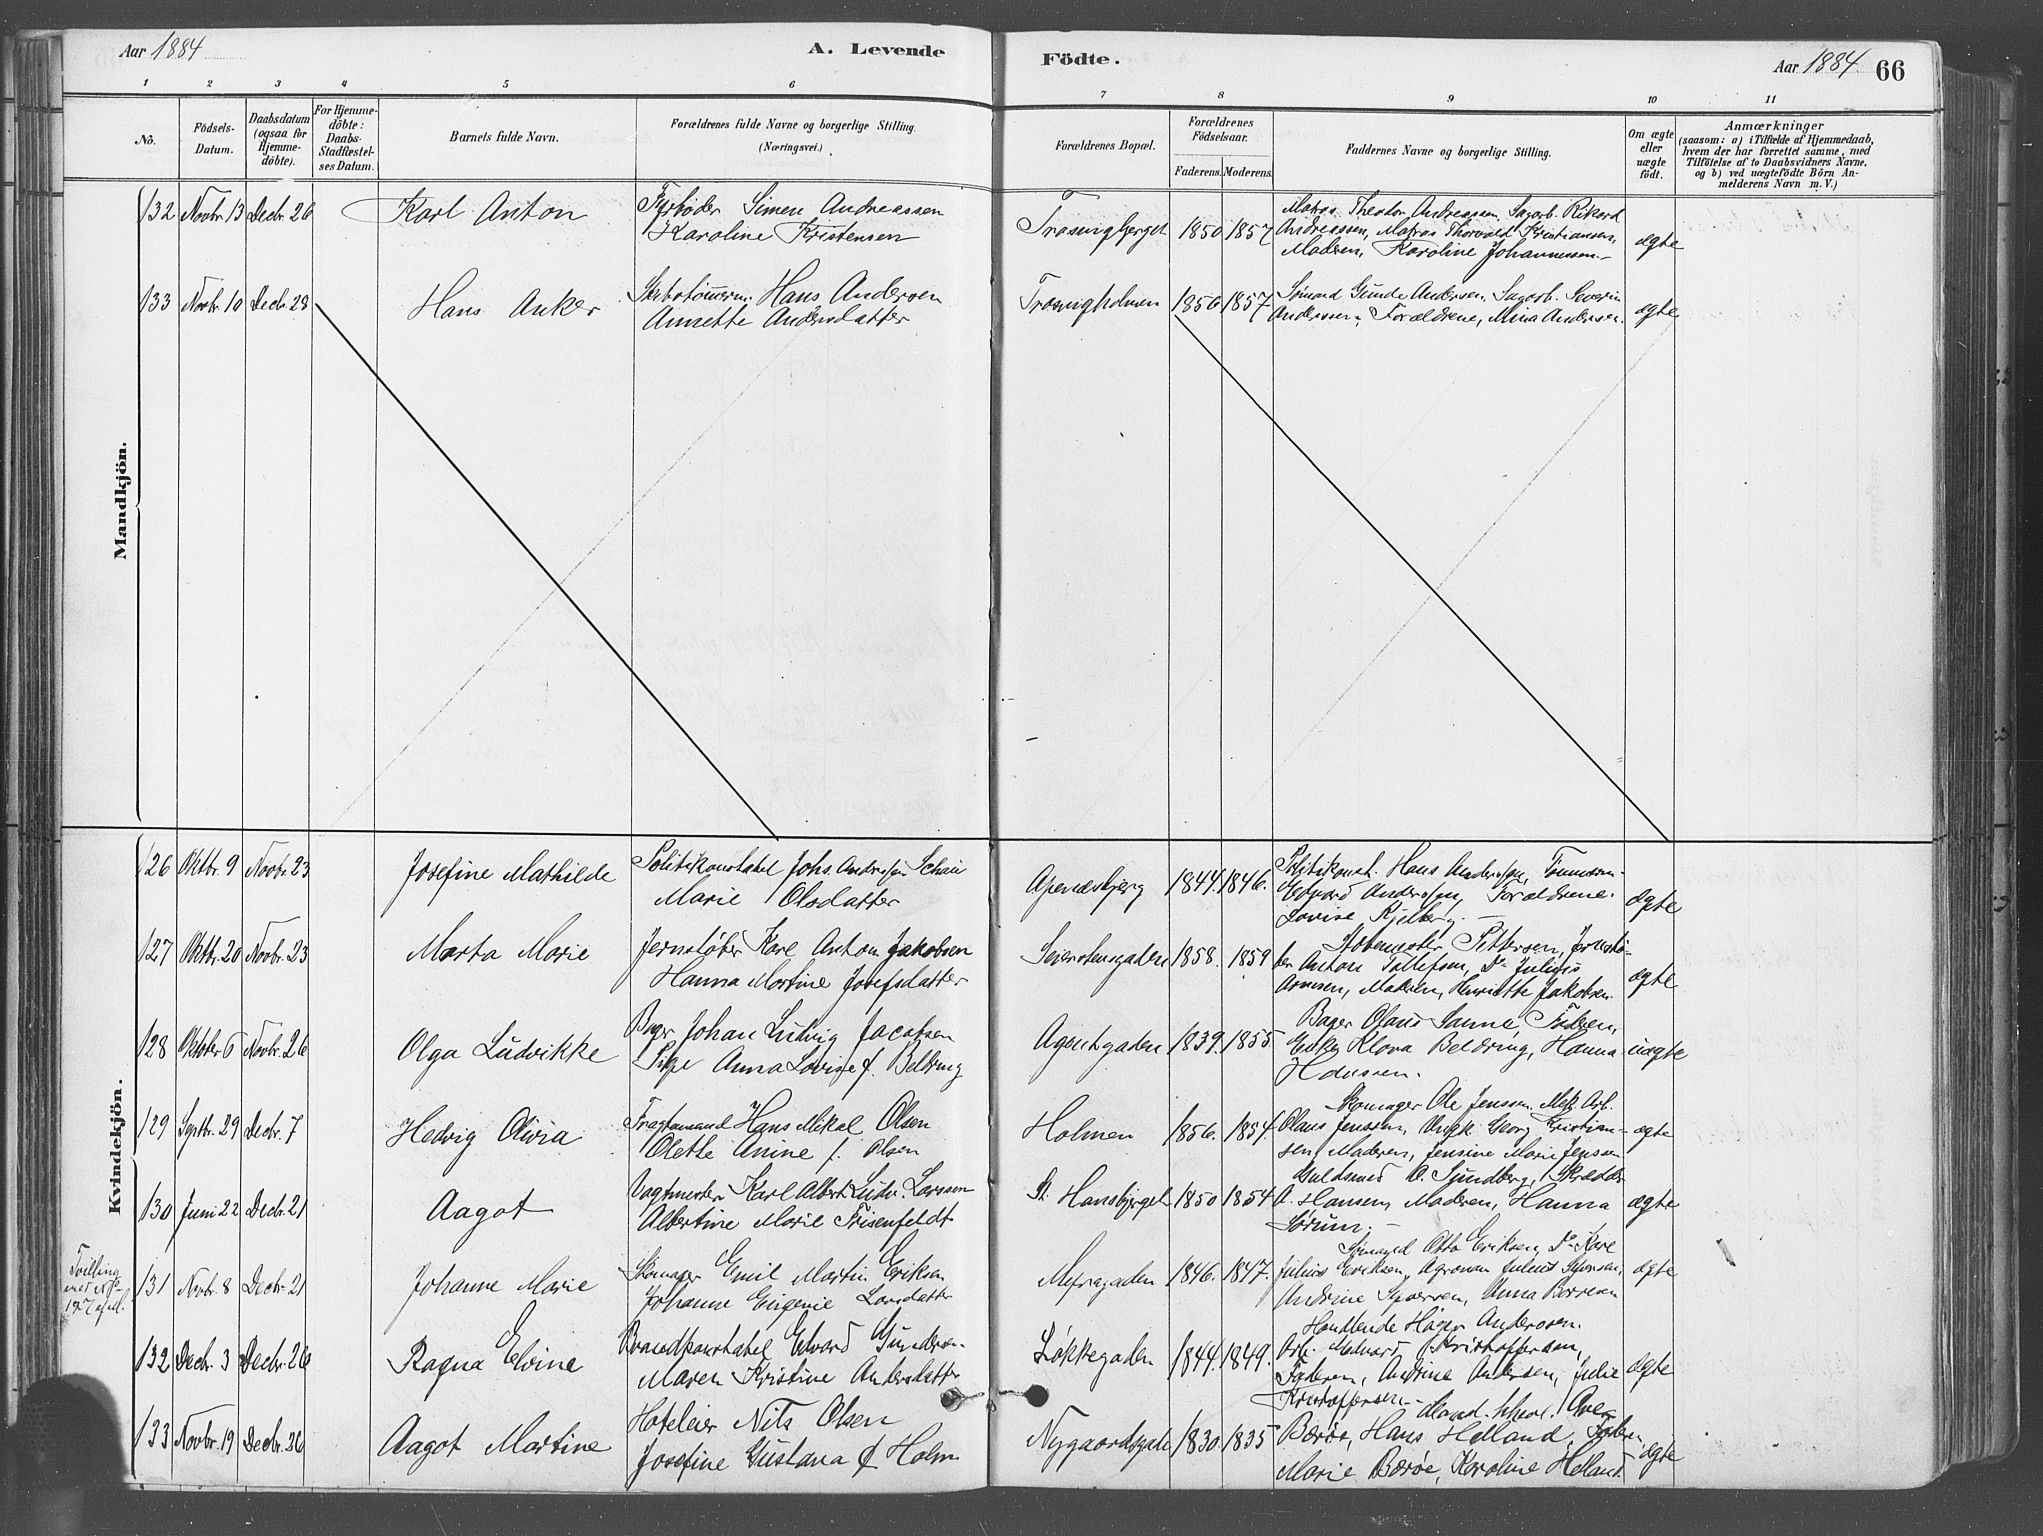 Aar 1884
A. Levende
Födte.
Aar 1884. 66
1 2 3 4 5 6 7 8 9 10 11
No.
Födsels-
Datum.
Daabsdatum
(ogsaa for
Hjemme-
döbte).
For Hjemme-
döbte:
Daabs-
Stadfæstel-
ses Datum.
Barnets fulde Navn.
Forældrenes fulde Navne og borgerlige Stilling.
(Næringsvei.)
Forældrenes Bopæl.
Forældrenes
Födselsaar.
Faderens. Moderens.
Faddernes Navne og borgerlige Stilling.
Om ægte
eller
uægte
födt.
Anmærkninger
(saasom: a) i Tilfælde af Hjemmedaab,
hvem der har forrettet samme, med
Tilföielse af to Daabsvidners Navne,
og b) ved uægtefödte Börn An-
melderens Navn m. V.)
Mandkjön.
132 Novbr. 13 Decbr. 26
Karl Anton
Fyrbøder Simen Andreassen
Karoline Kristensen
Trosvigbjerget 1850 1857
Matros Theodor Andreassen, Sagarb. Rikard
Andreassen, Matros Thorvald Kristiansen,
Madren, Karoline Johannessen
ægte
133 Novbr. 10 Decbr. 28
Hans Anker
Skibstømerm. Hans Andersen
Annette Andersdatter
Trosvigholmen 1856 1857
Sømand Gunde Andersen, Sagarb. Severin
Andersen, Forældrene, Mina Andersen.
ægte
Kvindekjön.
126 Oktbr. 9 Novbr. 23
Josefine Mathilde
Politikonstabel Johs. Andersen Schau
Marie Olsdatter
Apenesbjerg 1844. 1846.
Politikonst. Hans Andersen, Tømmerm.
Edvard Andersen, Forældrene.
Lovise Kjelberg.
ægte
127 Oktbr. 20 Novbr. 23
Marta Marie
Jernstøber Karl Anton Jakobsen
Hanna Martine Josefsdatter
1858. 1859
Støbemester Pettersen, Jernstø-
ber Anton Tollefsen, Do Julius
Arnesen, Madren, Henriette Jakobsen
ægte
128 Oktober 6 Novbr. 26
Olga Ludvikke
Bager Johan Ludvig Jacobsen
Pige Anna Lovise f. Beldring
Agentgaden 1839. 1855
Bager Olaus Sanne, Faderen,
Enke Klara Beldring, Hanna
uægte
129 Septbr. 29 Decbr. 7
Hedvig Olivia
Fragtemand Hans Mikal Olsen
Olette Anine f. Olsen
Holmen 1856. 1854.
Skomager Ole Jenssen. Mek. Arb.
Olaus Jenssen, Ungk. Georg Kristian-
sen, Maderen, Jensine Marie Jenssen
ægte
130 Juni 22 Decbr. 21
Aagot
Vagtmester Karl Albert Ludv. Larssen
Albertine Marie Frisenfeldt
St. Hansbjerget 1850 1854
Guldsmed O. Sjundberg, Skrædder
A. Hansen, Maderen, Hanna
Sørum.
ægte
Tvilling
med No
127 afdl.
131 Novbr. 8 Decbr. 21
Johanne Marie
Skomager Emil Martin Eriksen
Johanne Eugenie Larsdatter
1846. 1847.
Sømand Otto Eriksen, Do Karl
Julius Eriksen, Agronom Julius Syversen,
Andrine Syversen, Anna Borresen
ægte
132 Decbr. 3 Decbr. 26
Ragna Elvine
Brandkonstabel Edvard Gundersen
Maren Kristine Andersdatter
Løkkegaden 1844. 1849.
Handlende Hagen Anderssen.
Arb. Kristoffersen,
Faderen, Andrine Andersen, Julie
Kristoffersen.
ægte
133 Novbr. 19 Decbr. 26
Aagot Martine
Hoteleier Nils Olsen
Josefine Gustava f. Holm
Nygaardsgade 1830. 1835
Bærøe, Hans Helland, Faderen,
Marie Bærøe, Karoline Helland.
ægte